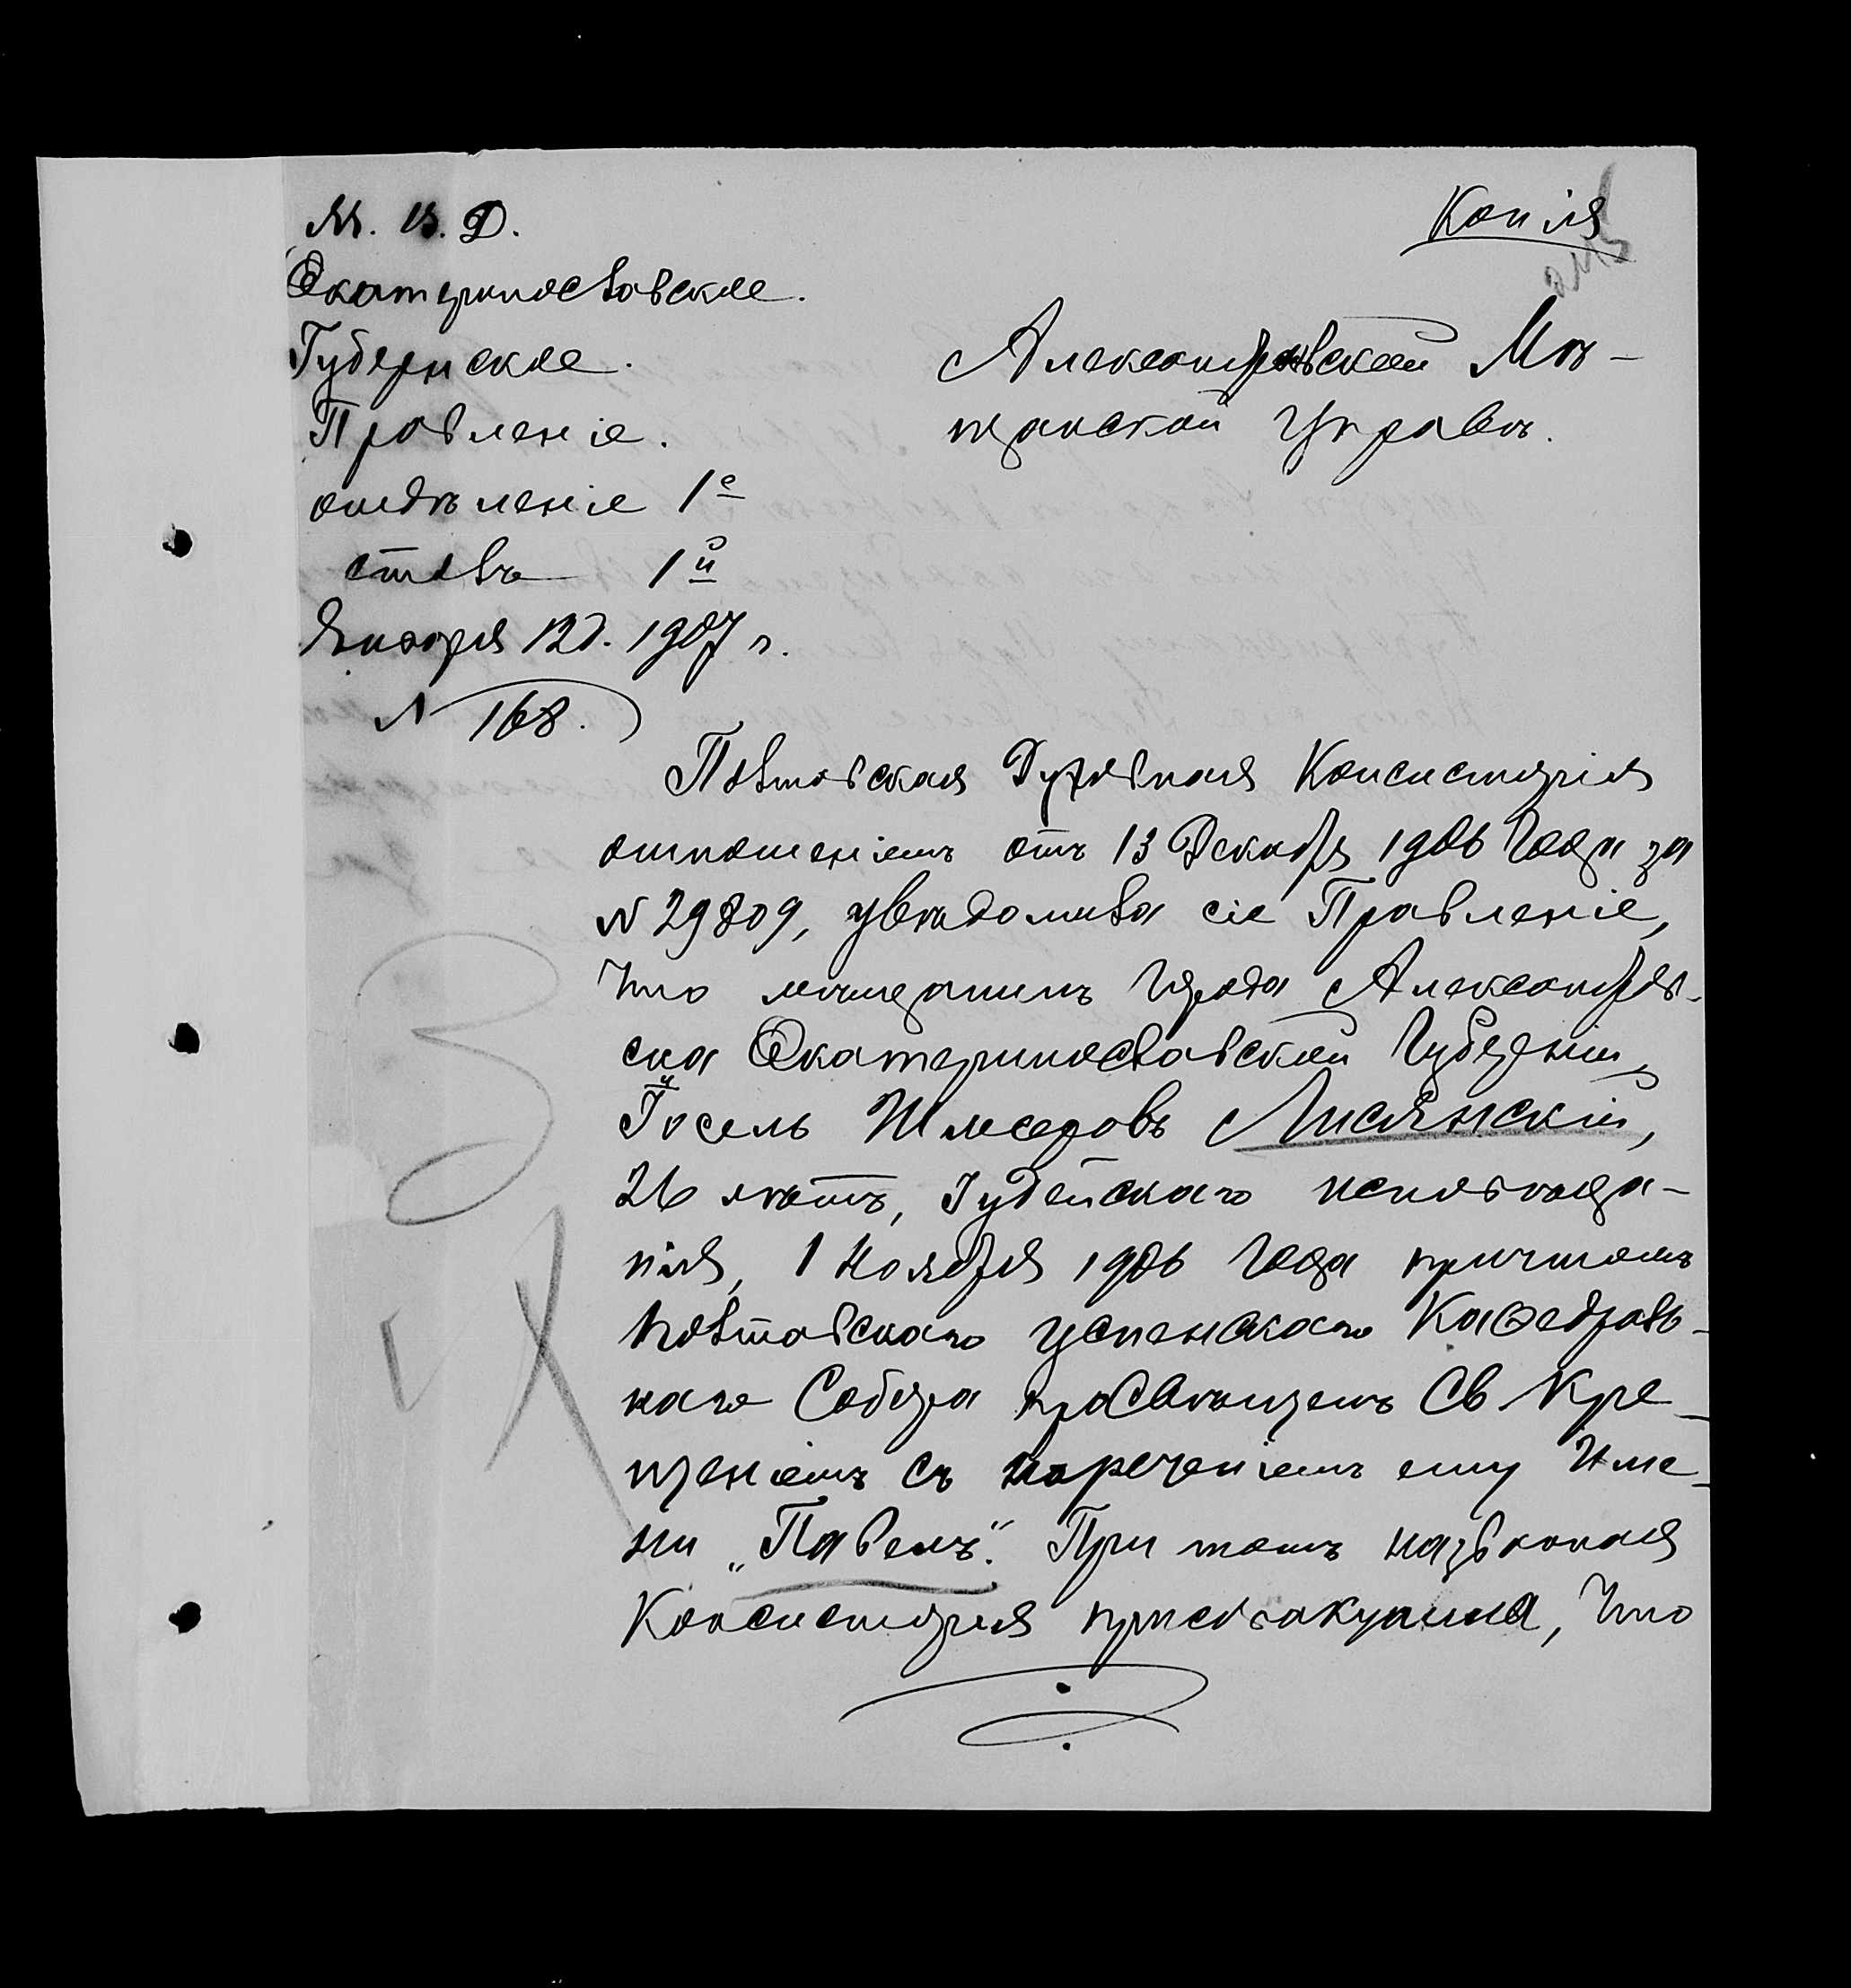 М. В. Д.
Екатеринославское.
Губернское.
Правленіе.
отдѣленіе 1е
столъ 1й
Января 12 д. 1907 г.
N 168.
Копія
Александровской Мѣ-
щанской Управѣ.
Полтавская Духовная Консисторія
отношеніемъ отъ 13 Декабря 1906 Года за
N 29809, увѣдомила сіе Правленіе,
Что мѣщанинъ Города Александров-
ска Екатеринославской Губерніи,
Іосель Шмееровъ Лисянскій,
26 лѣтъ, Іудейскаго исповѣда-
нія, 1 Ноября 1906 Года причтомъ
Полтавскаго Успенскаго Каѳедраль-
наго Собора просвѣщенъ Св Кре-
щеніемъ съ нареченіемъ ему Име-
ни „Павелъ“. При томъ названная
Консисторія присовокупила, Что